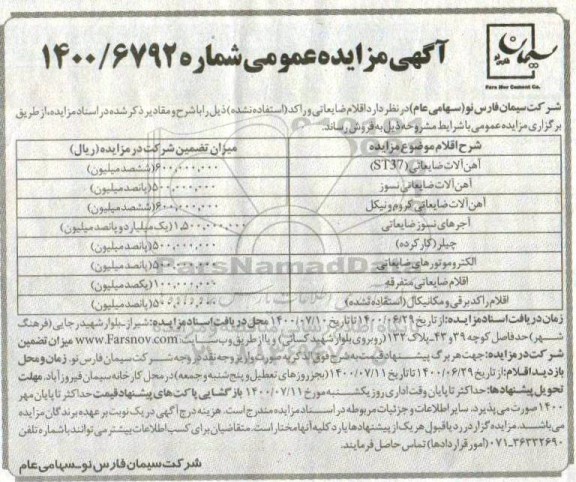 سیمان
Fars Nov Cement Co.
آگهی مزایده عمومی شماره ۱۴۰۰/۶۷۹۲
شرکت سیمان فارس نو (سهامی عام) در نظر دارد اقلام ضایعاتی و راکد (استفاده نشده) ذیل را با شرح و مقادیر ذکر شده در اسناد مزایده، از طریق
برگزاری مزایده عمومی با شرایط مشروحه ذیل به فروش رساند.
شرح اقلام موضوع مزایده	میزان تضمین شرکت در مزایده (ریال)
آهن آلات ضایعاتی (ST37)	۶۰۰,۰۰۰,۰۰۰ (ششصد میلیون)
آهن آلات ضایعاتی نسوز	۵۰۰,۰۰۰,۰۰۰ (پانصد میلیون)
آهن آلات ضایعاتی کروم و نیکل	۶۰۰,۰۰۰,۰۰۰ (ششصد میلیون)
آجرهای نسوز ضایعاتی	۱,۵۰۰,۰۰۰,۰۰۰ (یک میلیارد و پانصد میلیون)
چیلر (کارکرده)	۵۰۰,۰۰۰,۰۰۰ (پانصد میلیون)
الکتروموتورهای ضایعاتی	۵۰۰,۰۰۰,۰۰۰ (پانصد میلیون)
اقلام ضایعاتی متفرقه	۱۰۰,۰۰۰,۰۰۰ (یکصد میلیون)
اقلام راکد برقی و مکانیکال (استفاده نشده)	۵۰۰,۰۰۰,۰۰۰ (پانصد میلیون)
زمان دریافت اسناد مزایده: از تاریخ ۱۴۰۰/۰۶/۲۹ تا تاریخ ۱۴۰۰/۰۷/۱۰ محل دریافت اسناد مزایده: شیراز-بلوار شهید رجایی (فرهنگ
شهر) حدفاصل کوچه ۳۹ و ۴۳-پلاک ۱۳۲ (روبروی بلوار شهید کسائی) و یا از طریق وب سایت www.Farsnov.com میزان تضمین
شرکت در مزایده: جهت هر برگ پیشنهاد قیمت به شرح فوق الذکر به صورت واریز وجه نقد در وجه شرکت سیمان فارس نو. زمان و محل
بازدید اقلام: از تاریخ ۱۴۰۰/۰۶/۲۹ تا تاریخ ۱۴۰۰/۰۷/۱۱ (بجز روزهای تعطیل و پنج شنبه و جمعه) در محل کارخانه سیمان فیروزآباد. مهلت
تحویل پیشنهادها: حداکثر تا پایان وقت اداری روز یکشنبه مورخ ۱۴۰۰/۰۷/۱۱ بازگشایی پاکت های پیشنهاد قیمت حداکثر تا پایان مهر
۱۴۰۰ صورت می پذیرد. سایر اطلاعات و جزئیات مربوطه در اسناد مزایده مندرج است. هزینه درج آگهی در یک نوبت بر عهده برندگان مزایده
می باشد. مزایده گزار در رد یا قبول هر یک از پیشنهادها یا رد کلیه آنها مختار است. متقاضیان برای کسب اطلاعات بیشتر می توانند با شماره تلفن
۰۷۱-۳۶۳۳۲۶۹۰ (امور قراردادها) تماس حاصل فرمایند.
شرکت سیمان فارس نو-سهامی عام
ParsNamadData